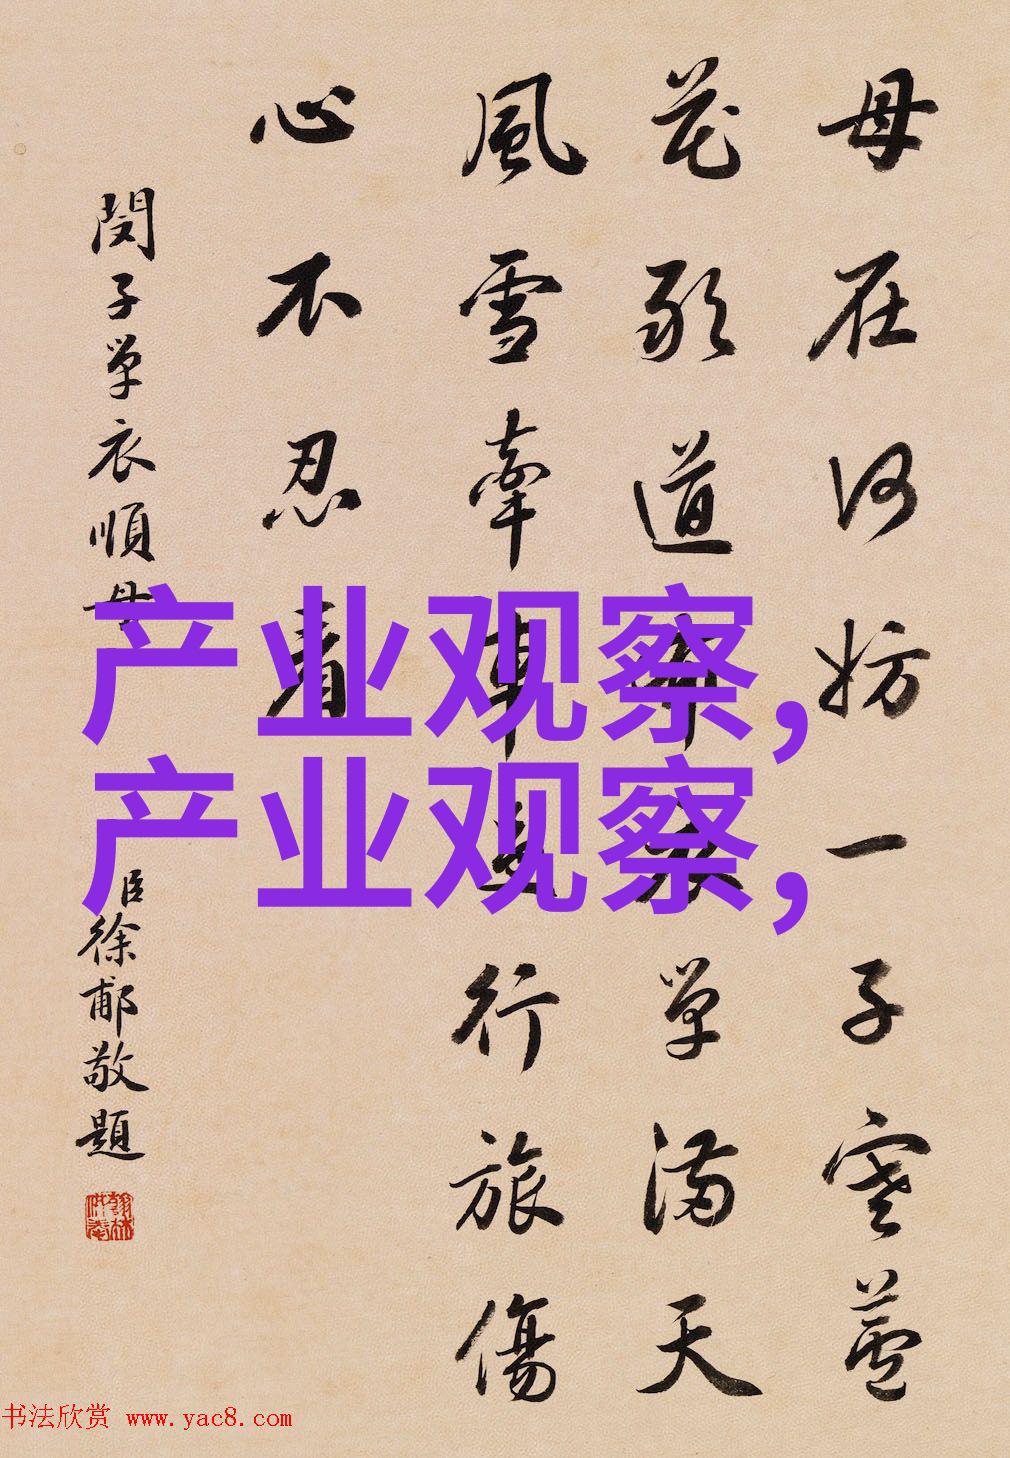 母在何妨一子寒蘆
花道布衣單滿天
風雪牽車行旅傷
心不忍看
閔子單衣順母
臣徐郙敬題
翰林供奉
产业观察,
产业观察,
书法欣赏 www.yac8.com